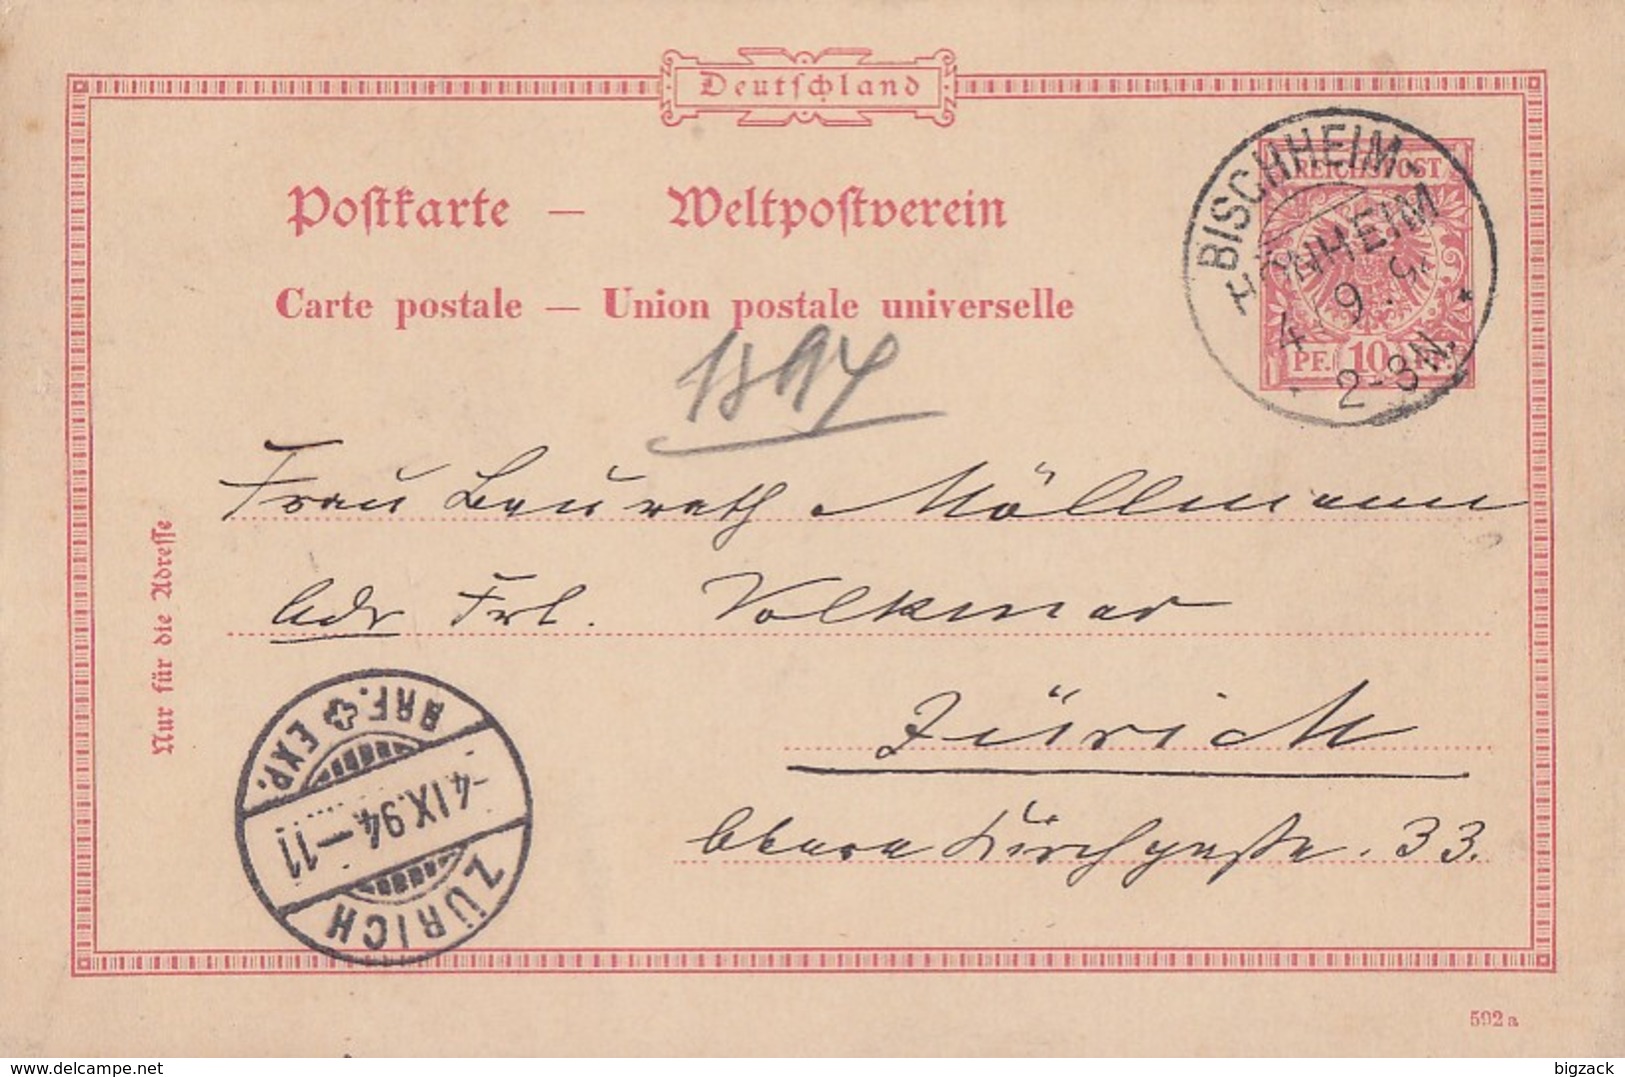 Deutschland
Postkarte — Weltpostverein
Carte postale — Union postale universelle
REICHSPOST
PF. 10 PF.
BISCHHEIM-
HÖNHEIM
4 9
2-3N.
1894
Frau Baurath Möllmann
Adr Frl. Volkmar
Zürich
Obere Kirchgasse. 33.
Nur für die Adresse
ZÜRICH
-4 IX.94-11
BRF. EXP.
592a
delcampe.net
bigzack